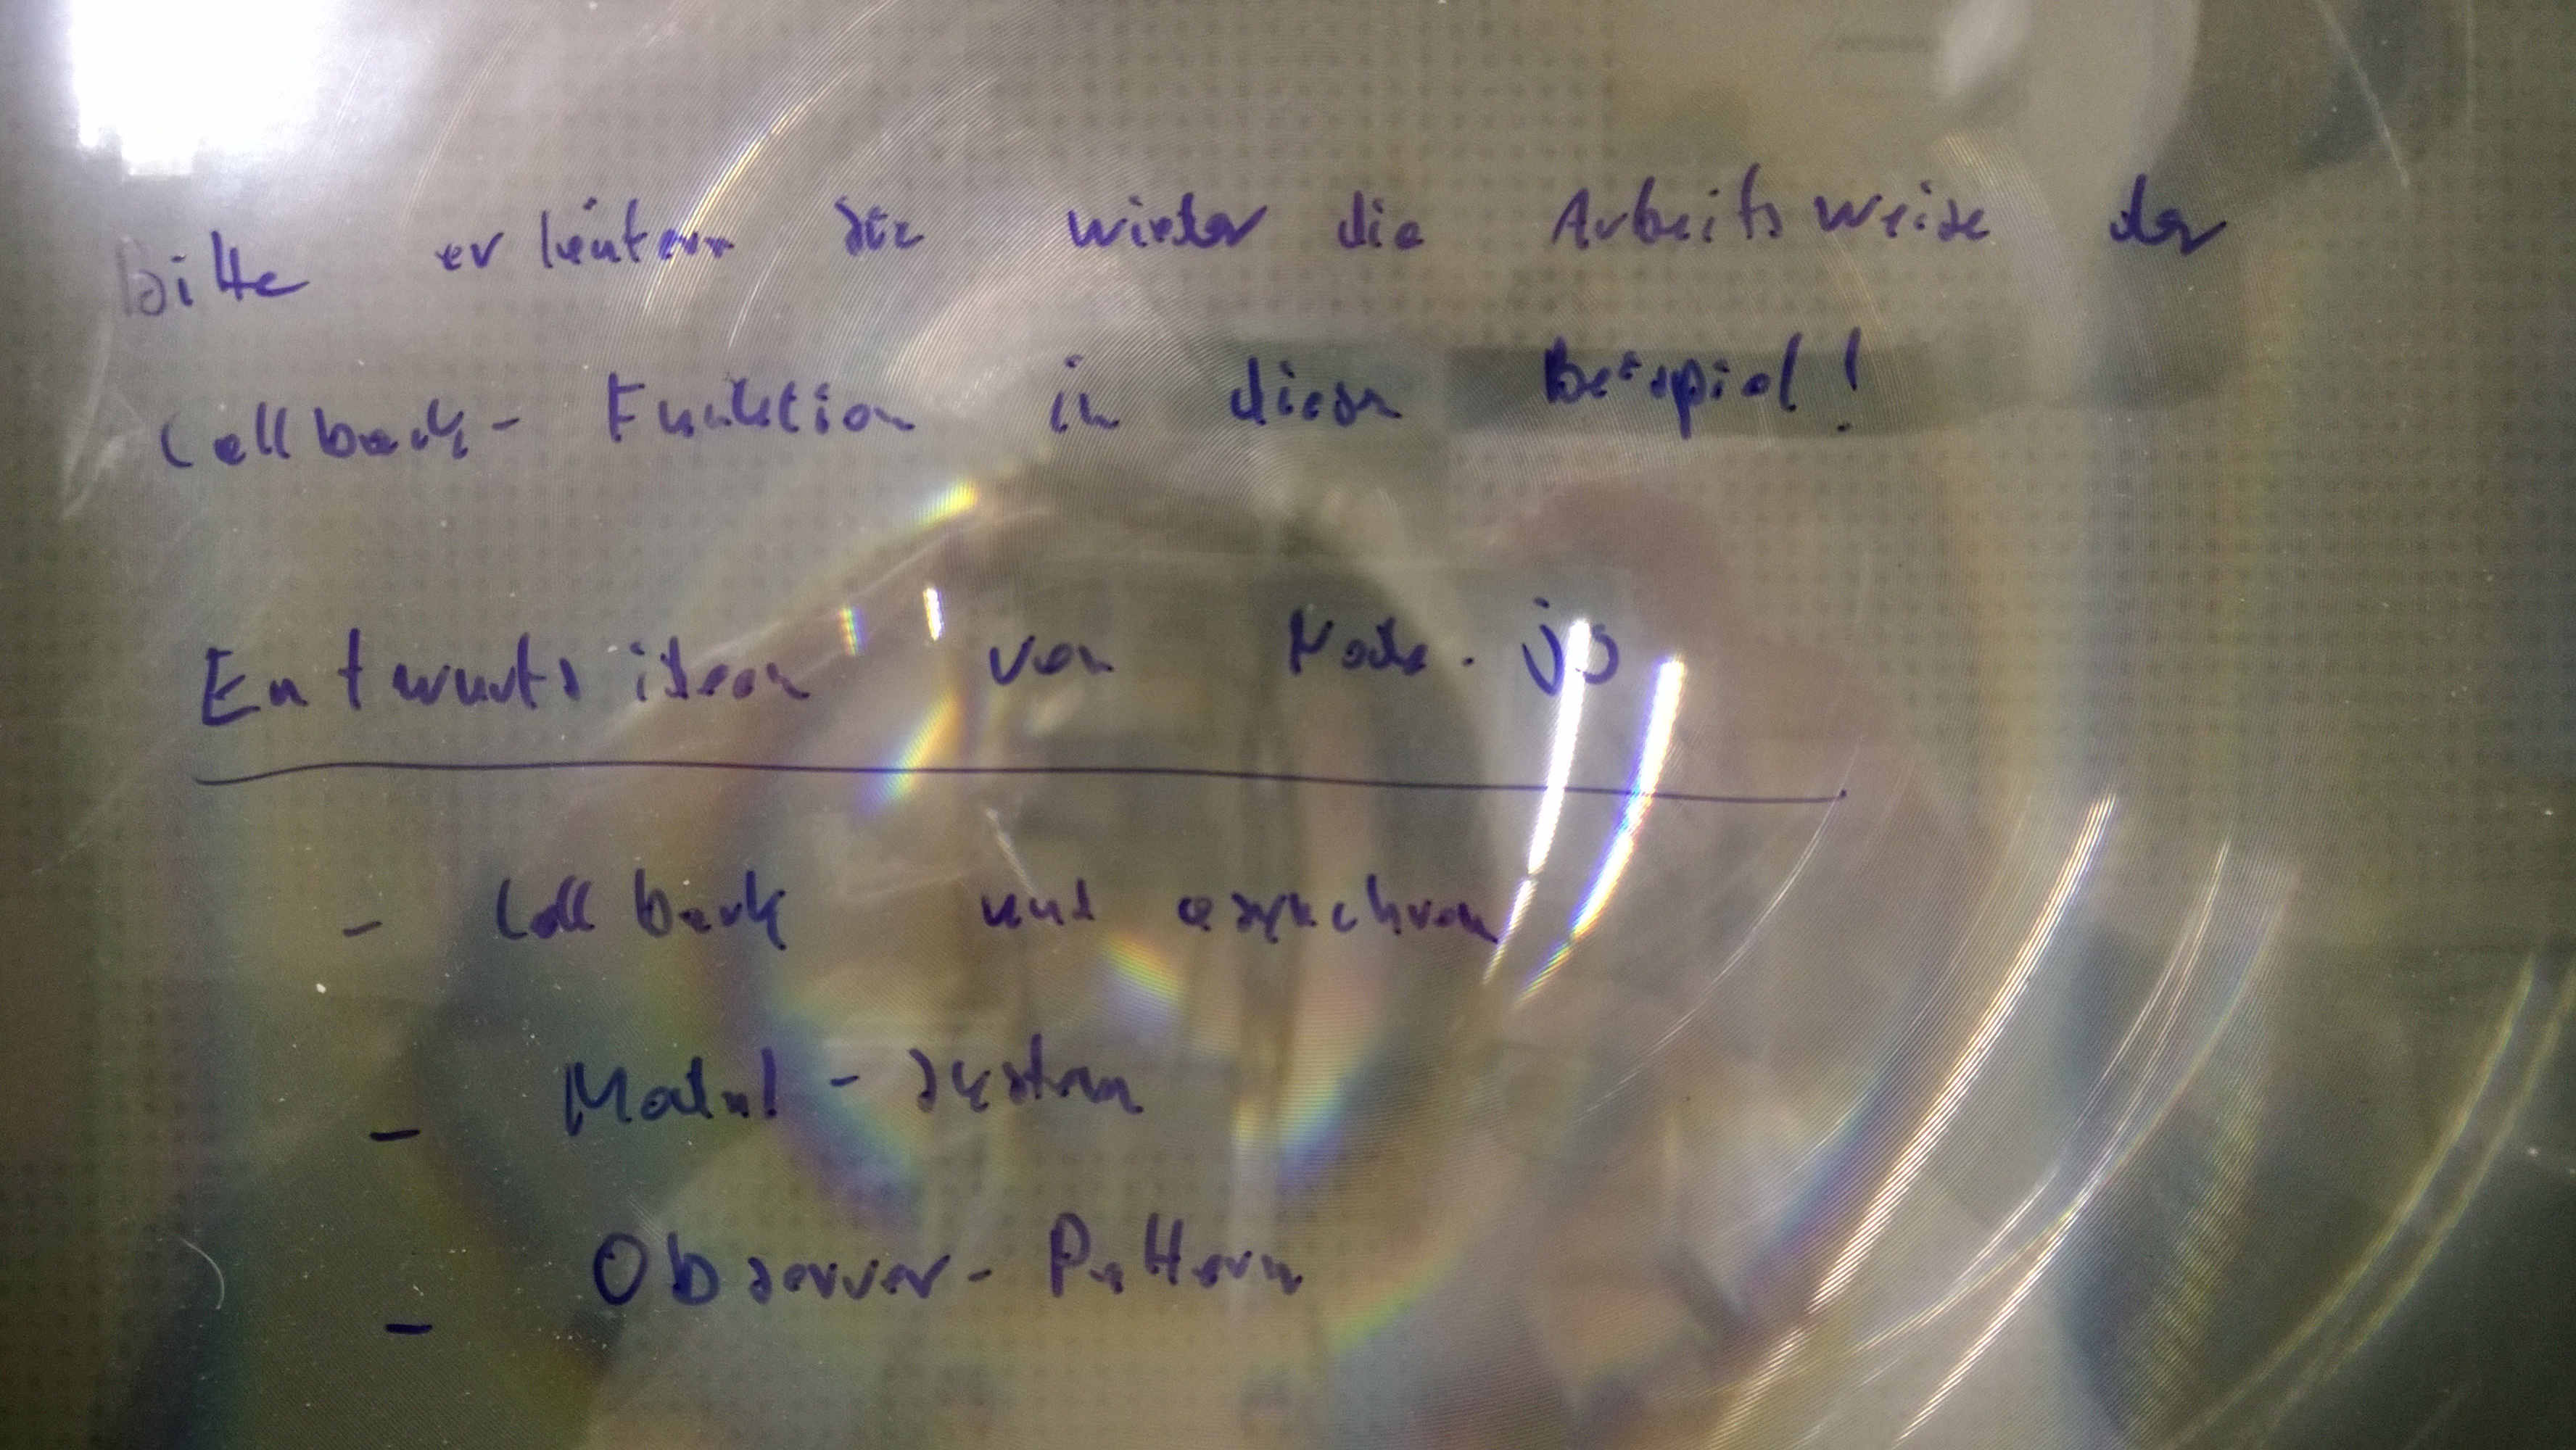 Bitte erläutern Sie wieder die Arbeitsweise der
Callback-Funktion in diesem Beispiel!
Entwurfsideen von Node.js
- Callback und asynchron
- Modul-System
- Observer-Pattern